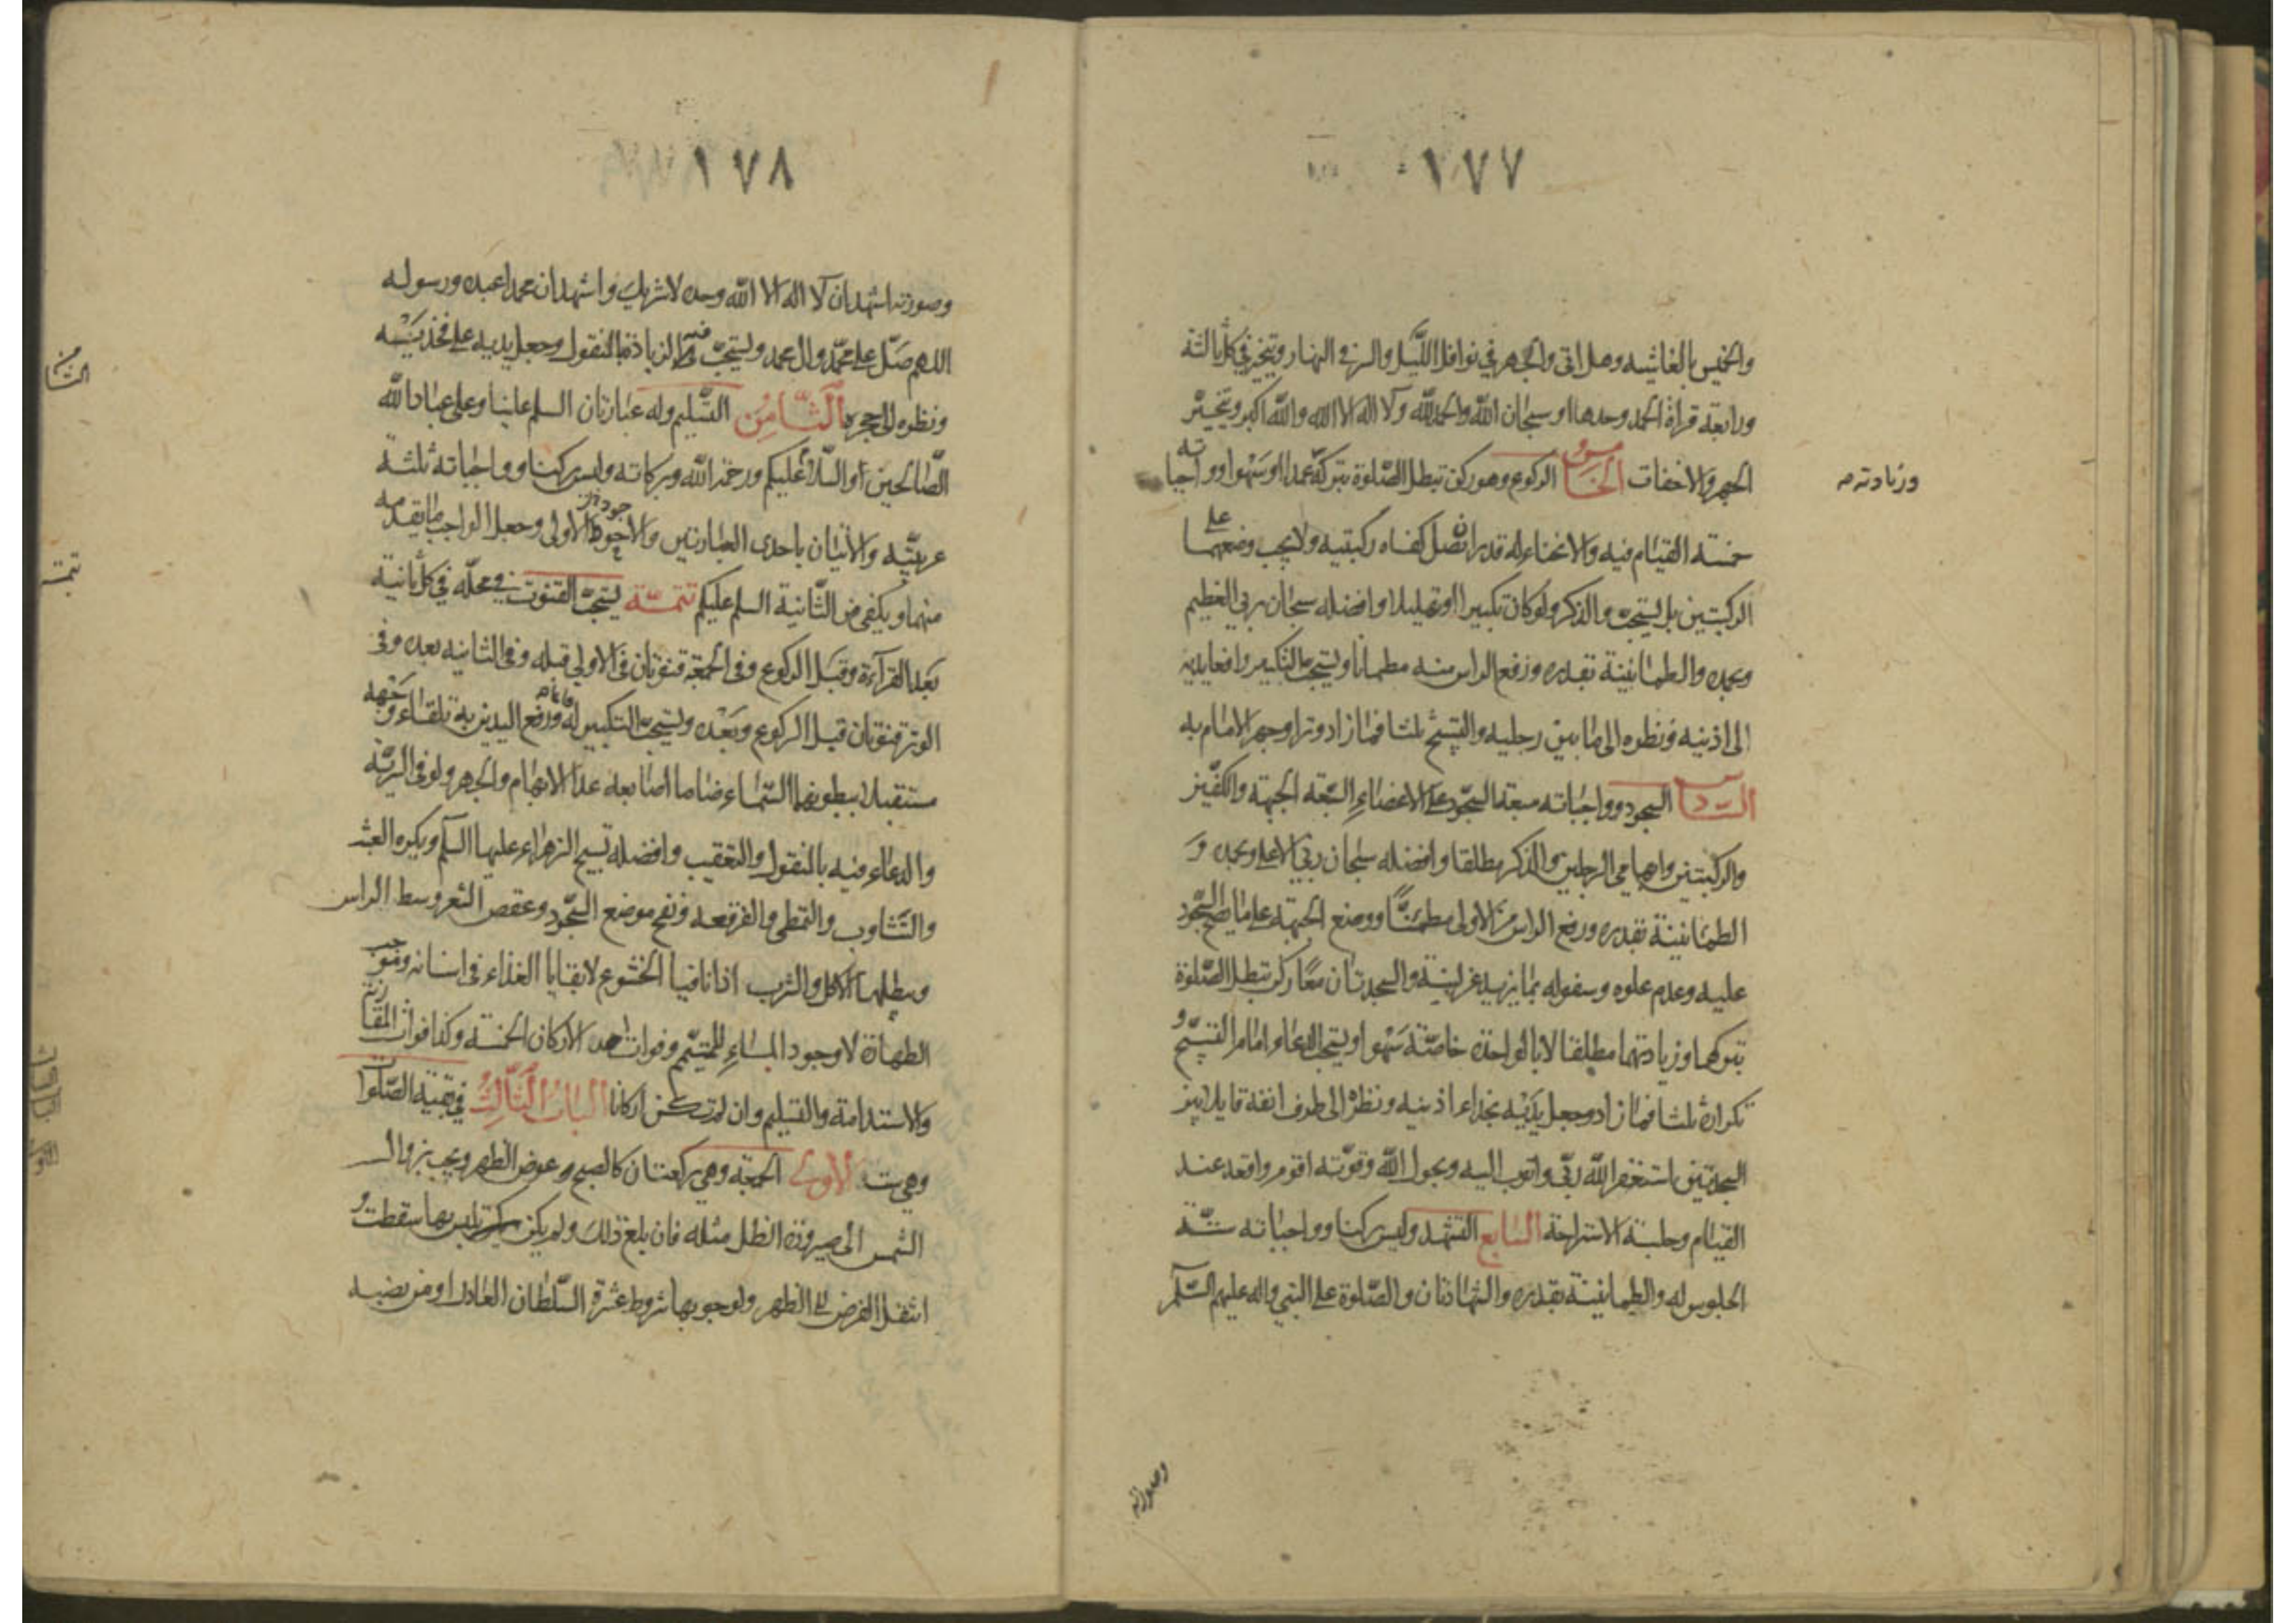 ١٧٧
والخميس بالغاشيه وهل اتى والجهر في نوافل الليل والسر في النهار ويتخير في كل ثالثة
ورابعة قراءة الحمد وحدها او سبحان الله والحمد لله ولا اله الا الله والله اكبر ويتخير
الجهر والاخفات الخامس الركوع وهو ركن تبطل الصلوة بتركه عمدا او سهوا وواجباته
وزيادته
خمسة القيام فيه والانحناء له قدر ان تصل كفاه ركبتيه ولا يجب وضعهما على
الركبتين بل يستحب والذكر ولو كان تكبيرا او تهليلا وافضله سبحان ربي العظيم
وبحمده والطمانينة بقدره ورفع الراس منه مطمانا ويستحب التكبير رافعا يديه
الى اذنيه ونظره الى ما بين رجليه والتسبيح ثلثا فما زاد وترا وجهر الامام به
السادس السجود وواجباته سبعة السجود على الاعضاء السبعة الجبهة والكفين
والركبتين وابهامي الرجلين والذكر مطلقا وافضله سبحان ربي الاعلى وبحمده و
الطمانينة بقدره ورفع الراس من الاولى مطمئنا ووضع الجبهة على ما يصح السجود
عليه وعدم علوه وسفوله بما يزيد عن لبنة والسجدتان معا ركن تبطل الصلوة
بتركهما وزيادتهما مطلقا لا بالواحدة خاصة سهوا ويستحب الدعاء امام التسبيح و
تكراره ثلثا فما زاد وجعل يديه بحذاء اذنيه ونظره الى طرف انفه قايلا بين
السجدتين استغفر الله ربي واتوب اليه وبحول الله وقوته اقوم واقعد عند
القيام وجلسة الاستراحة السابع التشهد وليس ركنا وواجباته ستة
الجلوس له والطمانينة بقدره والشهادتان والصلوة على النبي واله عليهم السلام
وصورته
١٧٨
وصورته اشهد ان لا اله الا الله وحده لا شريك واشهد ان محمدا عبده ورسوله
اللهم صل على محمد وال محمد ويستحب فيه الزيادة بالمنقول وجعل يديه على فخذيه
ونظره الى حجره الثامن التسليم وله عبارتان السلم علينا وعلى عباد الله
الصالحين او السلام عليكم ورحمة الله وبركاته وليس ركنا وواجباته ثلثة
عربيته والاتيان باحدى العبارتين والاجود الاولى وجعل الواجب ما يقدمه
منهما ويكفي من الثانية السلم عليكم تتمة يستحب القنوت في محله في كل ثانية
بعد القراءة وقبل الركوع وفي الجمعة قنوتان في الاولى قبله وفي الثانيه بعده وفي
الوتر قنوتان قبل الركوع وبعده ويستحب التكبير له ورفع اليدين به تلقاء وجهه
مستقبلا ببطونهما السماء ضاما اصابعه عدا الابهام والجهر ولو في السرية
والدعاء فيه بالمنقول والتعقيب وافضله تسبيح الزهراء عليها السلم ويكره العبث
والتثاوب والتمطي والفرقعة ونفخ موضع السجود وعقص الشعر وسط الراس
ويبطلها الاكل والشرب اذا نافيا الخشوع لا بقايا الغذاء في اسنانه وموجب
الطهارة لا وجود الماء للمتيمم وفوات احد الاركان الخمسة وكذا فوات المقارنة
والاستدامة والتسليم وان لم تكن اركانا الباب الثالث في بقية الصلوات
وهي ست الاولى الجمعة وهي ركعتان كالصبح عوض الظهر ويجب بزوال
الشمس الى صيرورة الظل مثله فان بلغ ذلك ولم يكن تلبس بها سقطت و
انتقل الفرض الى الظهر ولوجوبها شروط عشرة السلطان العادل او من نصبه
الثامن
تتمة